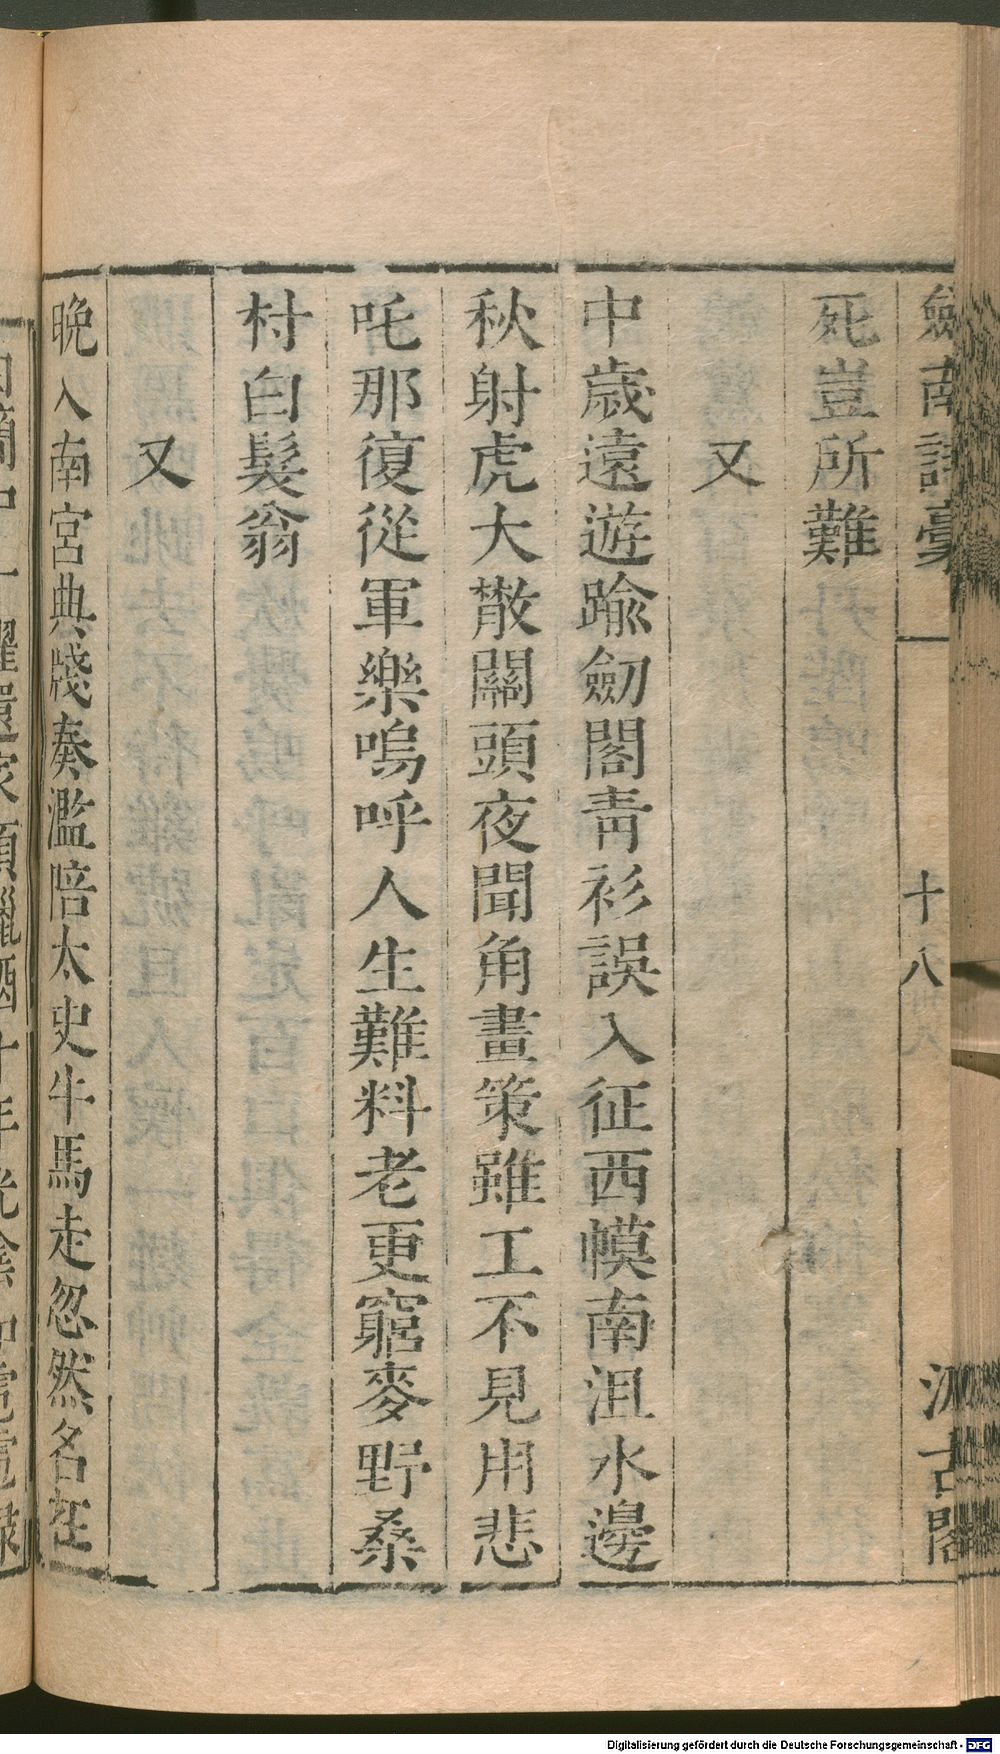 劒南詩稾 十八 汲古閣
死豈所難
又
中歲遠遊踰劒閣靑衫誤入征西幙南沮水邊
秋射虎大散關頭夜聞角畫策雖工不見用悲
吒那復從軍樂嗚呼人生難料老更窮麥野桑
村白髮翁
又
晚入南宮典牋奏濫陪太史牛馬走忽然名在
Digitalisierung gefördert durch die Deutsche Forschungsgemeinschaft - DFG